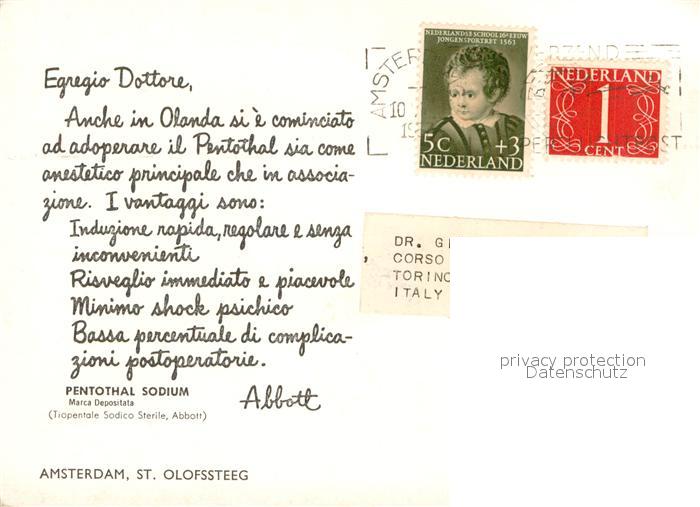 Egregio Dottore,
Anche in Olanda si è cominciato
ad adoperare il Pentothal sia come
anestetico principale che in associa-
zione. I vantaggi sono:
Induzione rapida, regolare e senza
inconvenienti
Risveglio immediato e piacevole
Minimo shock psichico
Bassa percentuale di complica-
zioni postoperatorie.
PENTOTHAL SODIUM
Marca Depositata
(Tiopentale Sodico Sterile, Abbott)
Abbott
AMSTERDAM, ST. OLOFSSTEEG
NEDERLANDSE SCHOOL 16e EEUW
JONGENSPORTRET 1563
5C +3
NEDERLAND
NEDERLAND
1
CENT
AMSTER
10
DR. G
CORSO
TORINO
ITALY
privacy protection
Datenschutz